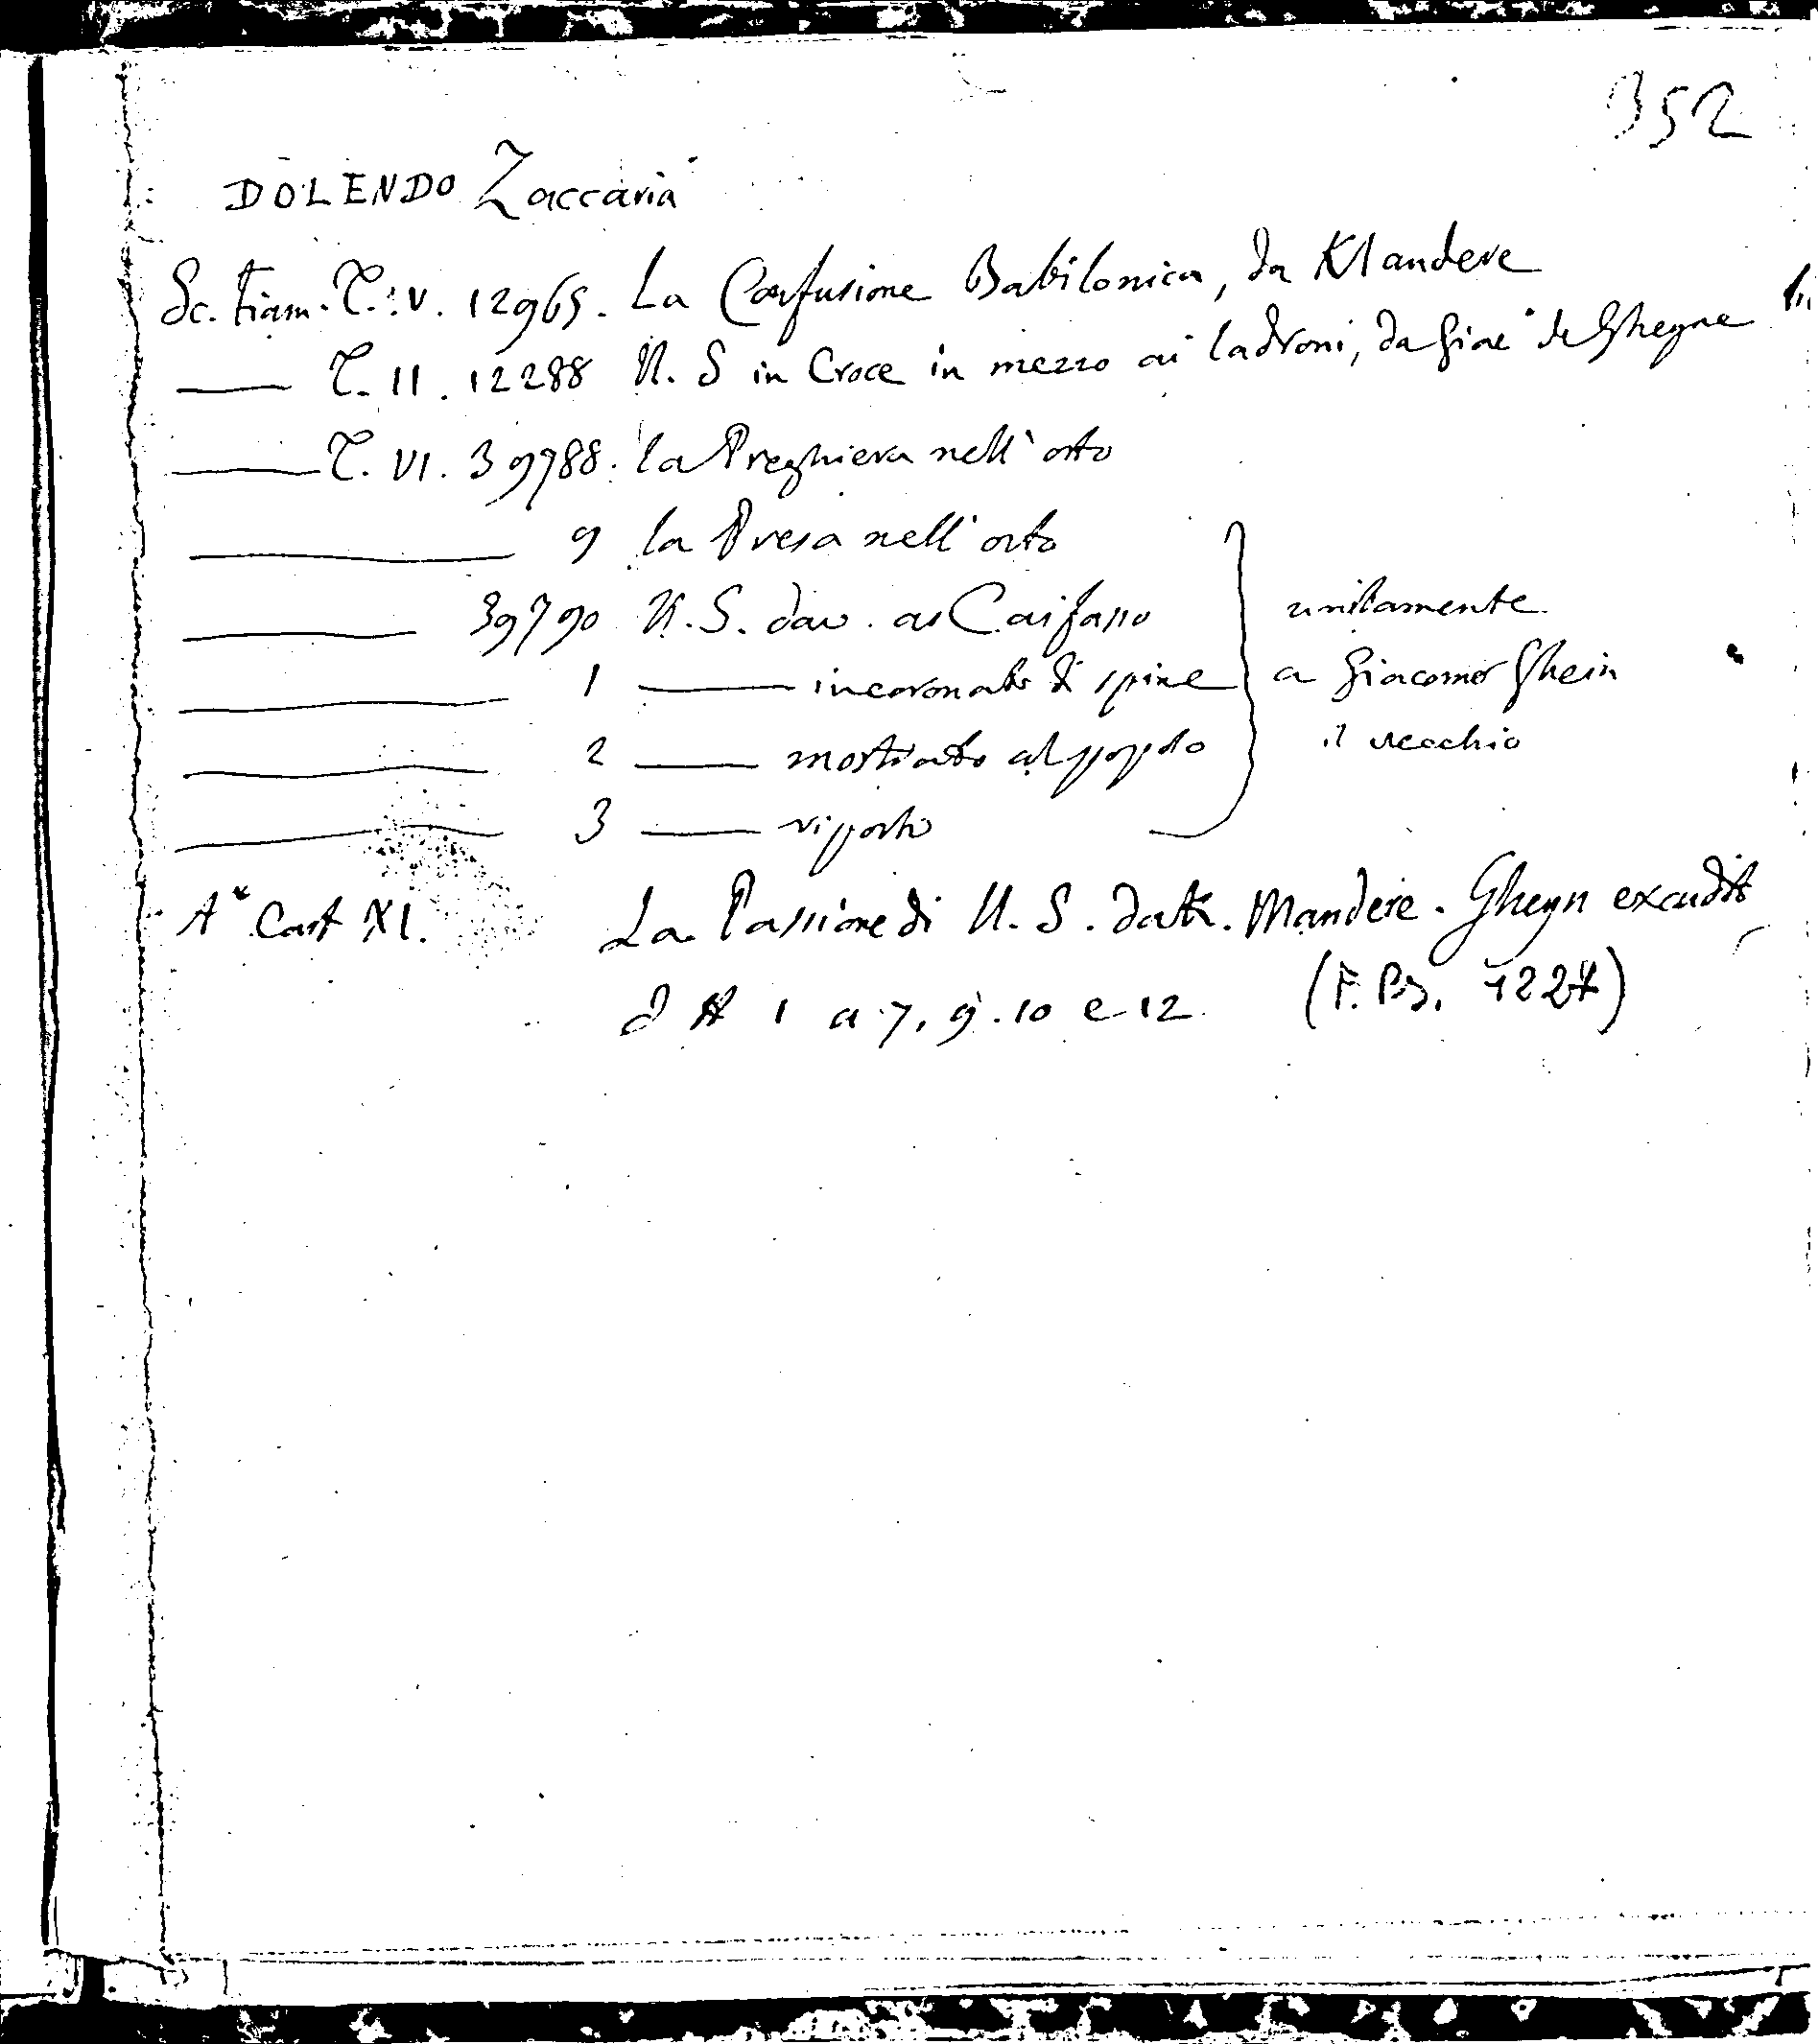 352
DOLENDO Zaccaria
Sc. fiam. T. V. 12965. La Confusione Babilonica, da KMandere
T. II. 12288 N. S in Croce in mezzo ai ladroni, da Giac° de Gheyne
T. VI. 39788. la Preghiera nell'orto
9 la Presa nell'orto
39790 N. S. dav. a Caifasso
1 incoronato di spine
2 mostrato al popolo
3 risporto
unitamente
a Giacomo Ghein
il vecchio
Cart XI. La Passione di N. S. da K. Mandere. Gheyn excudit
1 a 7, 9. 10 e 12 (F. B3. 1227)